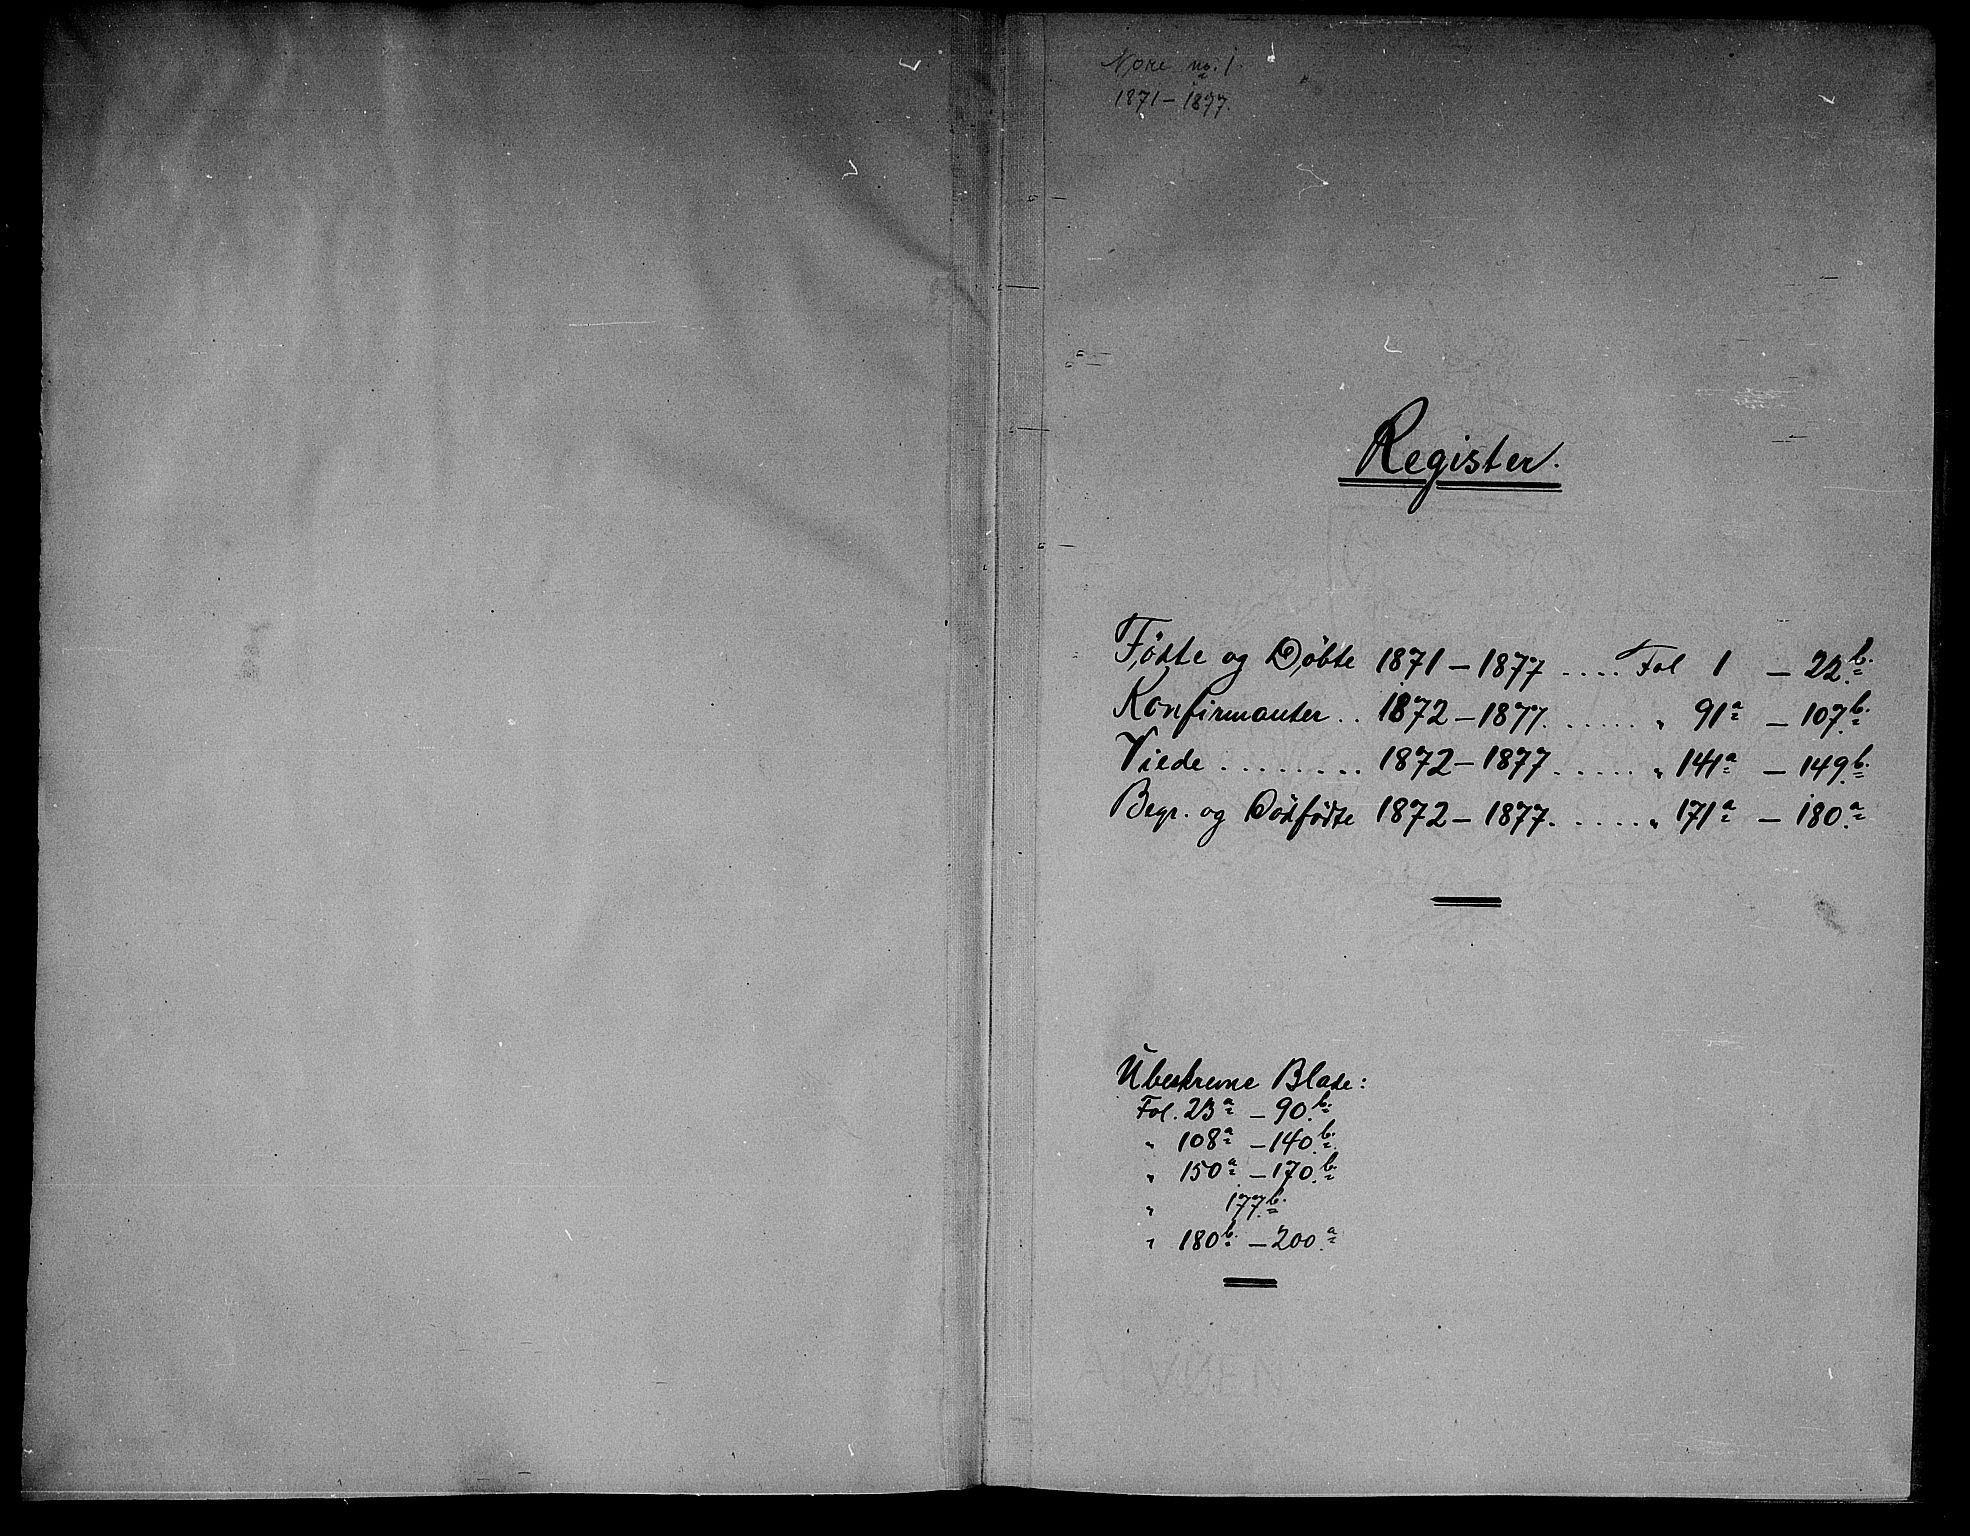 Nore no. 1.
1871 – 1877.
Register.
Fødte og Døbte 1871 – 1877 .... Fol 1 – 22.b.
Konfirmanter .. 1872 – 1877. ...... " 91a – 107.b.
Viede ........ 1872 – 1877 ..... " 141a – 149.b.
Begr. og Dødfødte 1872 – 1877. ..... " 171a – 180.a
Ubeskrevne Blade:
Fol. 23a – 90.b.
" 108a – 140.b.
" 150a – 170.b.
" 177.b.
" 180b. – 200.a
ALVØEN